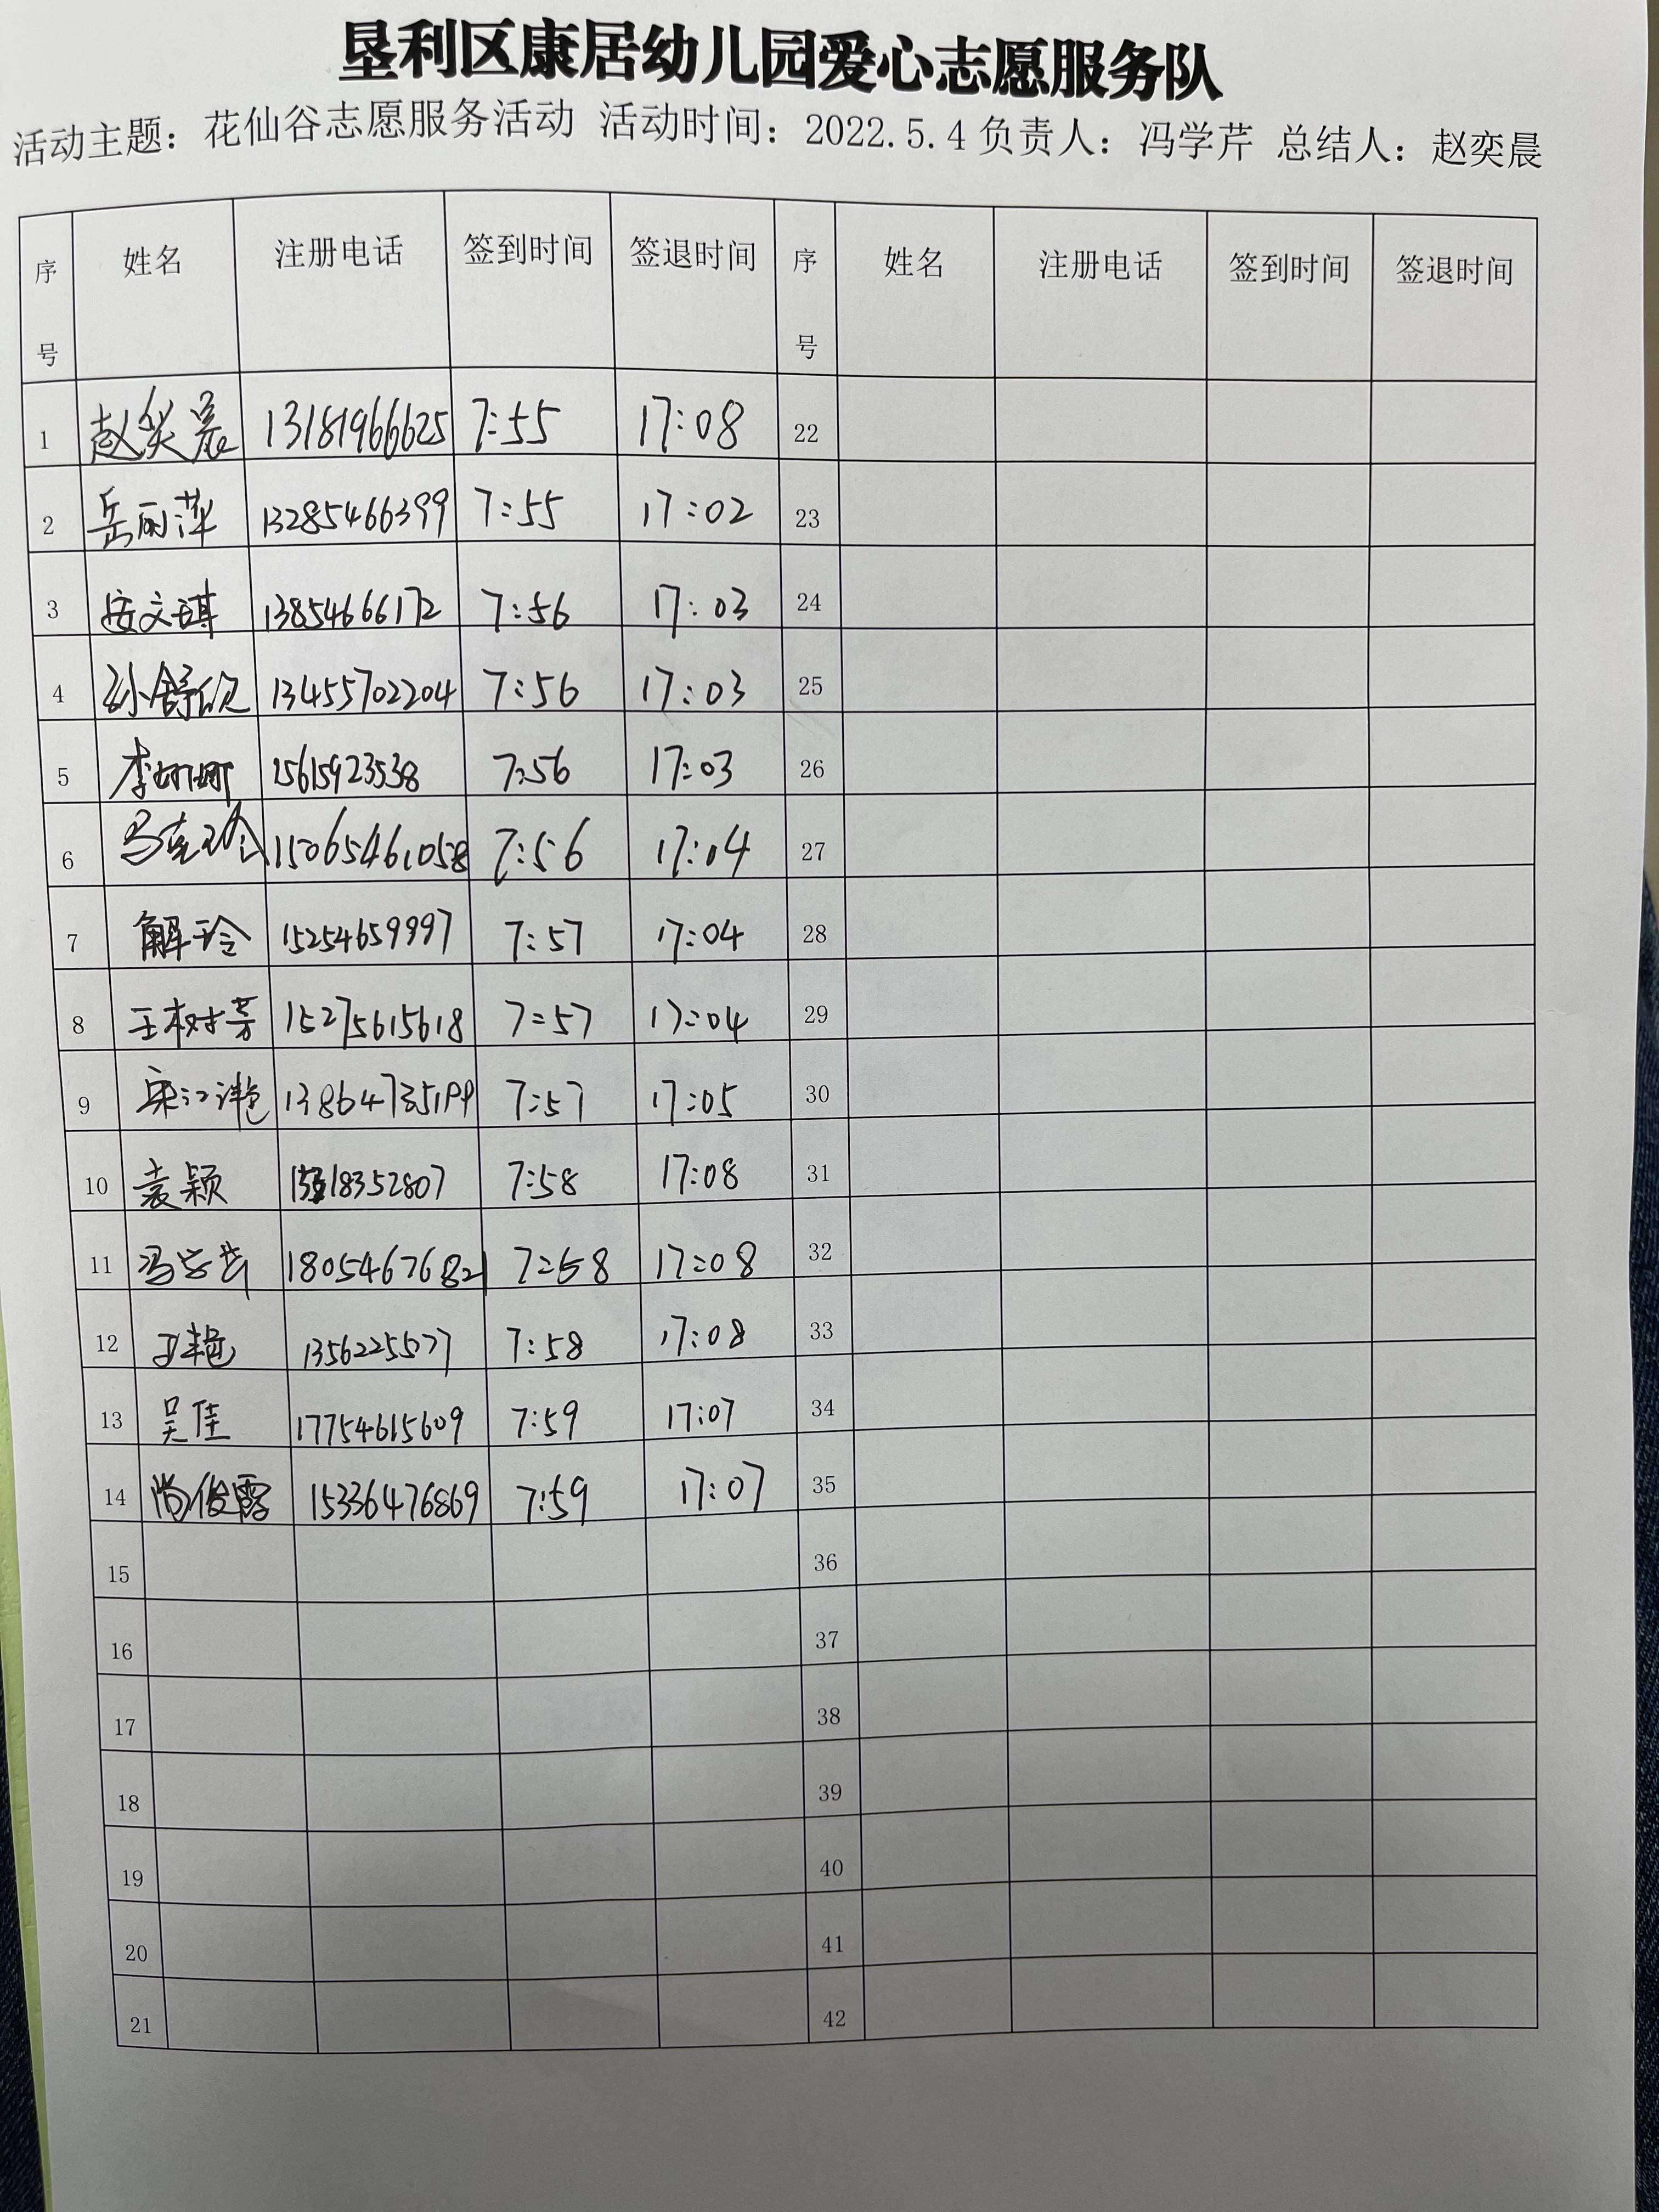 垦利区康居幼儿园爱心志愿服务队
活动主题：花仙谷志愿服务活动 活动时间：2022.5.4 负责人：冯学芹 总结人：赵奕晨
序号 姓名 注册电话 签到时间 签退时间 序号 姓名 注册电话 签到时间 签退时间
1 赵奕晨 13181966625 7:55 17:08 22
2 岳丽萍 13285466399 7:55 17:02 23
3 安文琪 13854666172 7:56 17:03 24
4 孙舒欣 13455702204 7:56 17:03 25
5 李 15615923538 7:56 17:03 26
6 马克玲 15065461058 7:56 17:04 27
7 解玲 15254659997 7:57 17:04 28
8 王树芳 15275615618 7:57 17:04 29
9 宋江艳 7:57 17:05 30
10 袁颖 7:58 17:08 31
11 冯学芹 18054676821 7:58 17:08 32
12 艳 7:58 17:08 33
13 吴佳 17754615609 7:59 17:07 34
14 尚俊霞 15336476869 7:59 17:07 35
15 36
16 37
17 38
18 39
19 40
20 41
21 42